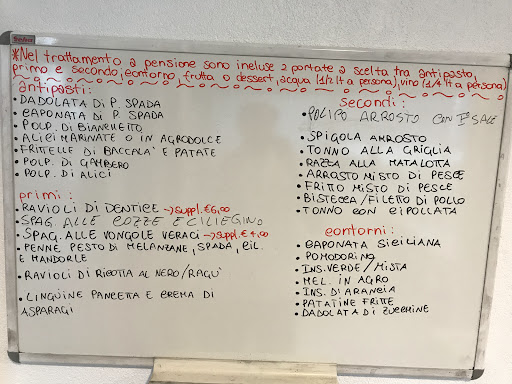 *Nel trattamento a pensione sono incluse 2 portate a scelta tra antipasto,
primo e secondo, contorno, frutta o dessert, acqua (1/2 lt a persona), vino (1/4 lt a persona)
antipasti:
• DADOLATA DI P. SPADA
• CAPONATA DI P. SPADA
• POLP. DI BIANCHETTO
• ALICI MARINATE O IN AGRODOLCE
• FRITTELLE DI BACCALA' E PATATE
• POLP. DI GAMBERO
• POLP. DI ALICI
primi:
• RAVIOLI DI DENTICE → suppl. € 6,00
• SPAG. ALLE COZZE E CILIEGINO
• SPAG. ALLE VONGOLE VERACI → suppl. € 4,00
• PENNE PESTO DI MELANZANE, SPADA, CIL.
E MANDORLE
• RAVIOLI DI RICOTTA AL NERO/RAGU'
• LINGUINE PANCETTA E CREMA DI
ASPARAGI
secondi:
• POLIPO ARROSTO CON SALE
• SPIGOLA ARROSTO
• TONNO ALLA GRIGLIA
• RAZZA ALLA MATALOTTA
• ARROSTO MISTO DI PESCE
• FRITTO MISTO DI PESCE
• BISTECCA/FILETTO DI POLLO
• TONNO CON CIPOLLATA
contorni:
• CAPONATA SICILIANA
• POMODORINO
• INS. VERDE/MISTA
• MEL. IN AGRO
• INS. DI ARANCIA
• PATATINE FRITTE
• DADOLATA DI ZUCCHINE